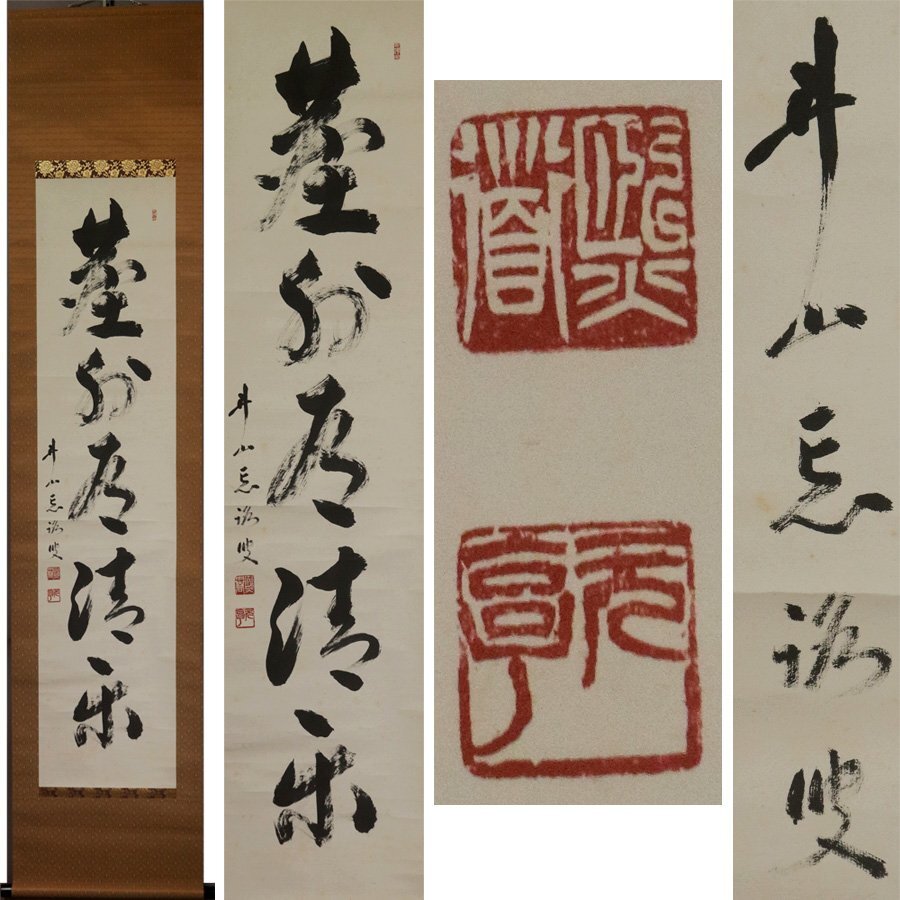 塵外有清楽
井山忘路叟
塵外有清楽
井山忘路叟
井山忘路叟